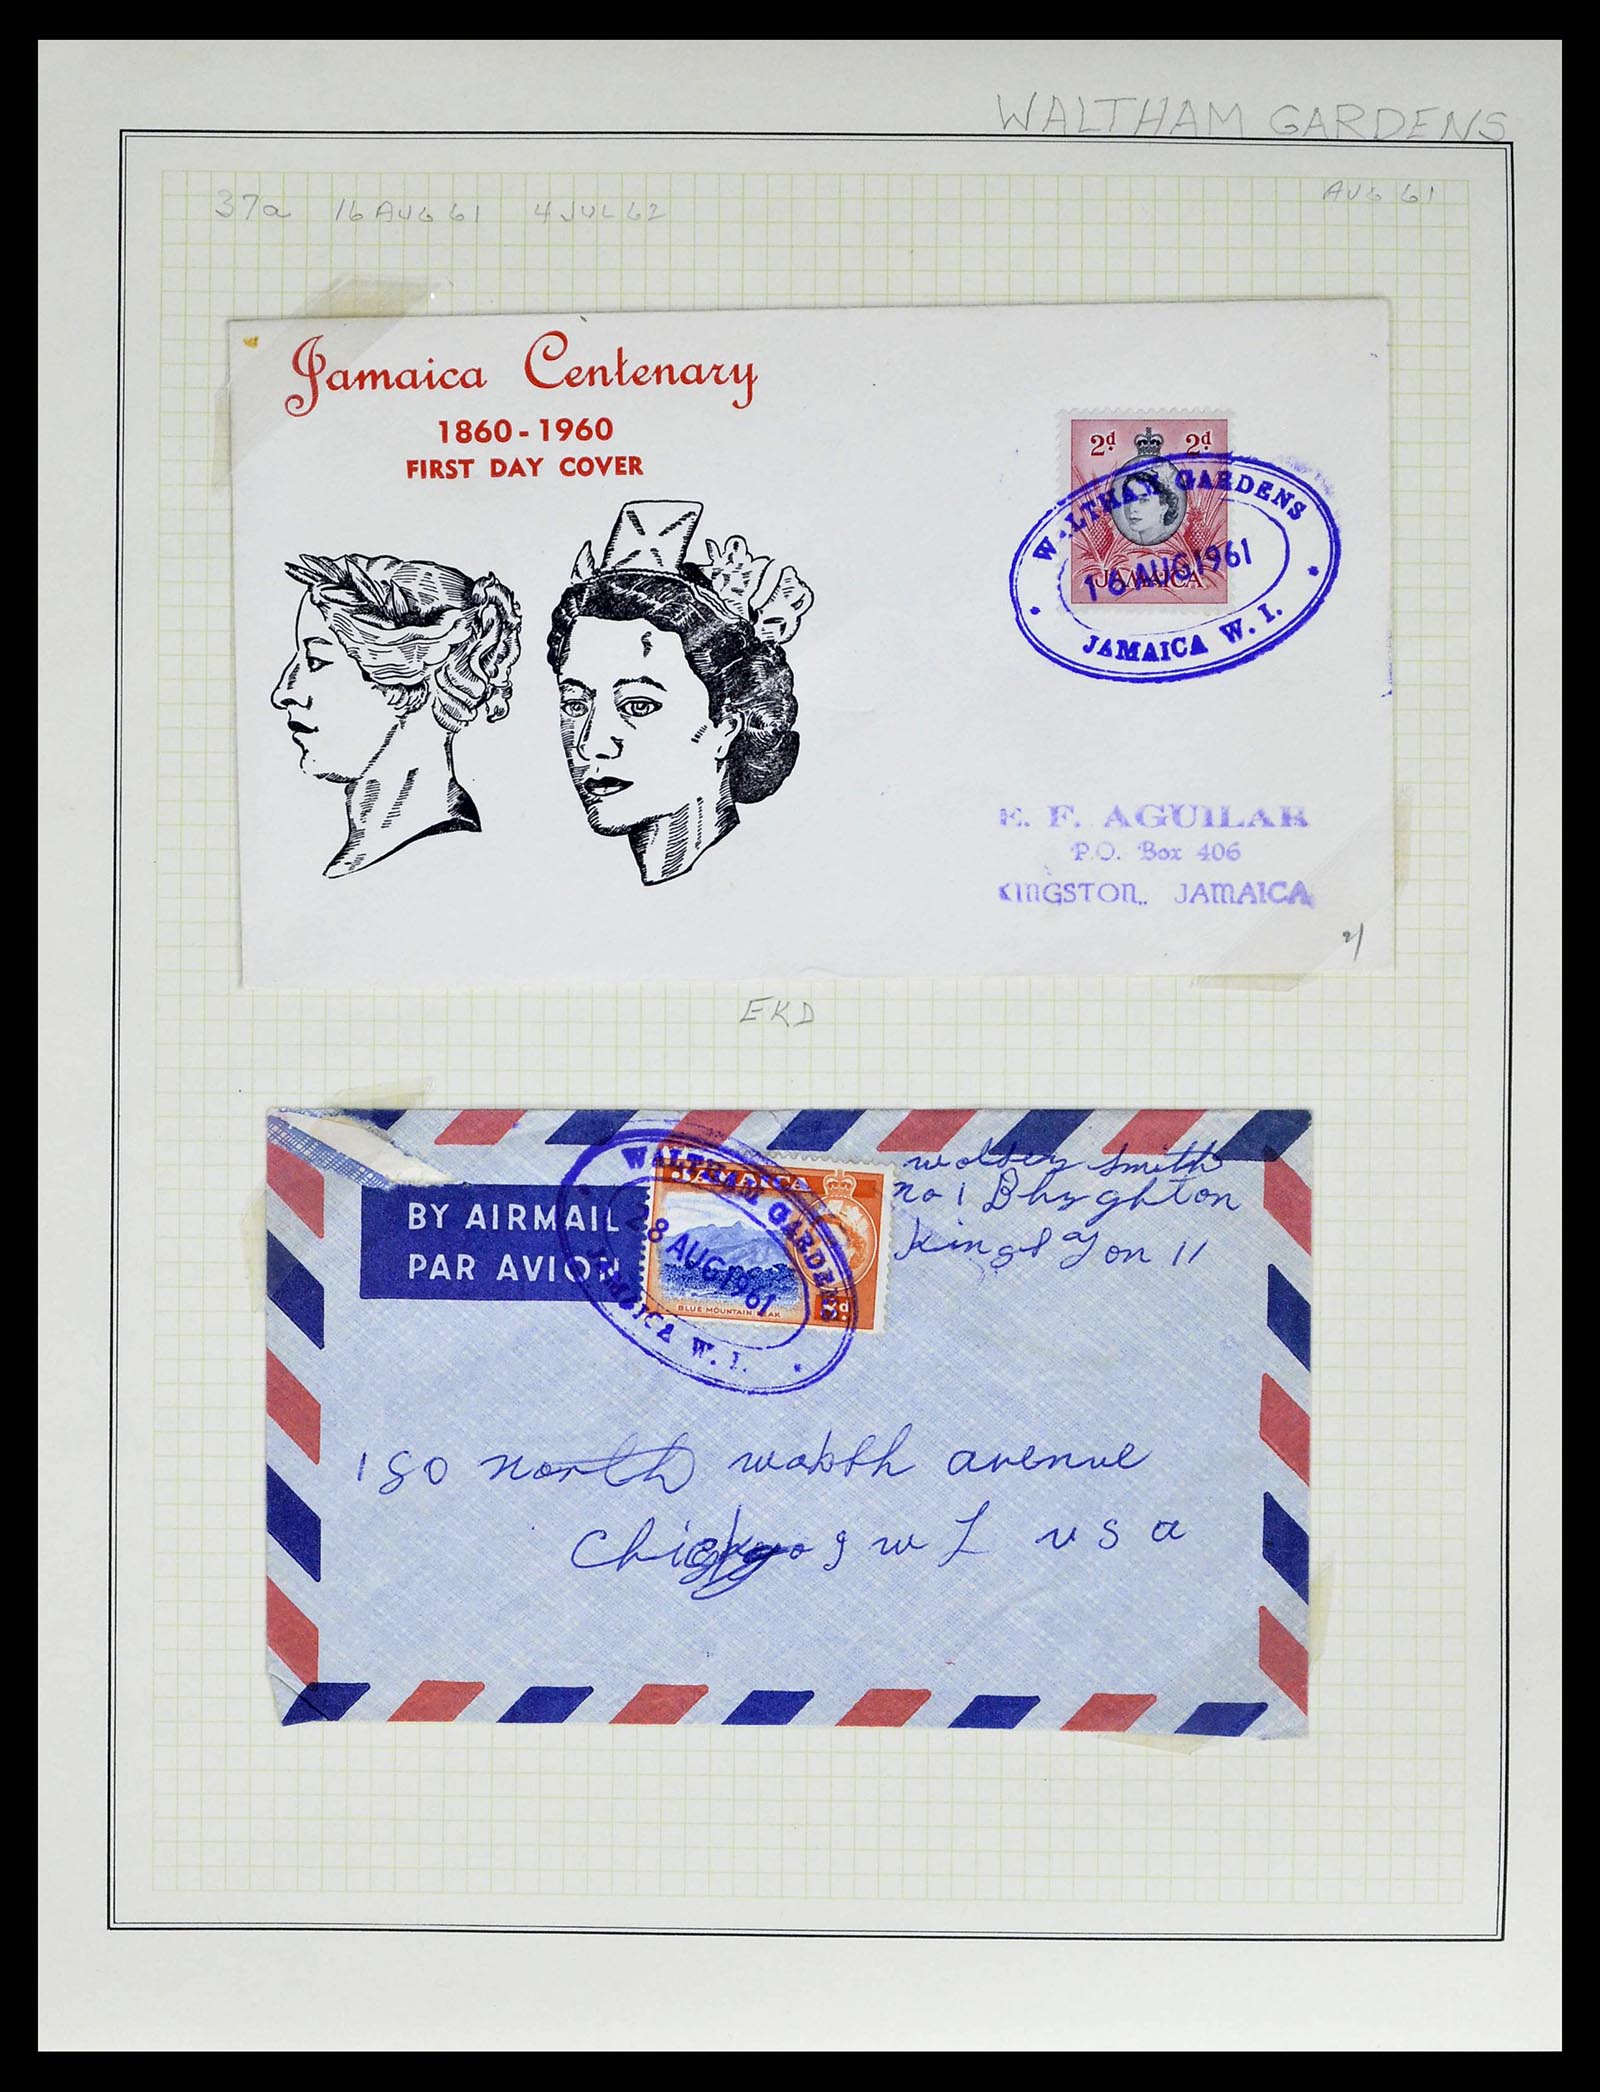 WALTHAM GARDENS
AUG 61
37a 16 AUG 61 4 JUL 62
Jamaica Centenary
1860-1960
FIRST DAY COVER
2d 2d
JAMAICA
WALTHAM GARDENS
16 AUG 1961
JAMAICA W. I.
E. F. AGUILAR
P.O. Box 406
KINGSTON, JAMAICA
2/
EKD
BY AIRMAIL
PAR AVION
JAMAICA
BLUE MOUNTAIN PEAK
WALTHAM GARDENS
28 AUG 1961
JAMAICA W. I.
Smith
no 1
11
180 north avenue
u s a